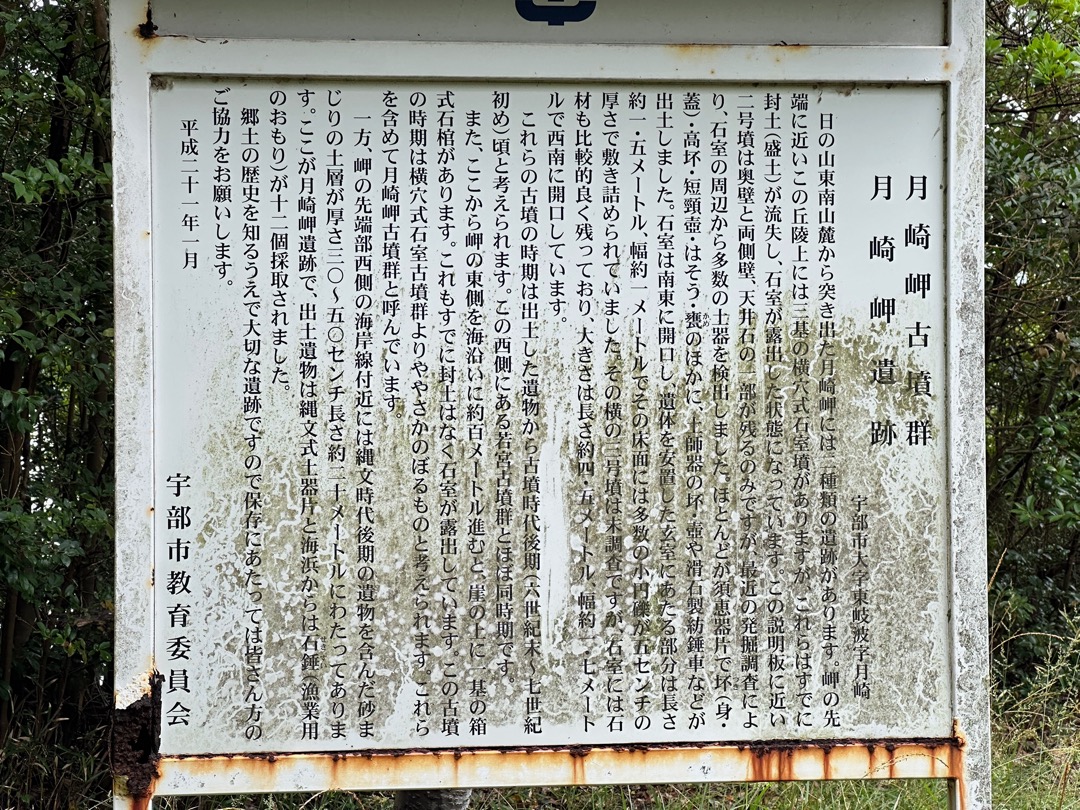 月崎岬古墳群
月崎岬遺跡
宇部市大字東岐波字月崎
日の山東南山麓から突き出た月崎岬には二種類の遺跡があります。岬の先
端に近いこの丘陵上には三基の横穴式石室墳がありますが、これらはすでに
封土(盛土)が流失し、石室が露出した状態になっています。この説明板に近い
二号墳は奥壁と両側壁、天井石の一部が残るのみですが、最近の発掘調査によ
り、石室の周辺から多数の土器を検出しました。ほとんどが須恵器片で坏(身・
蓋)・高坏・短頸壺・はそう・甕のほかに、土師器の坏・壺や滑石製紡錘車などが
かめ
出土しました。石室は南東に開口し、遺体を安置した玄室にあたる部分は長さ
約一・五メートル、幅約一メートルでその床面には多数の小円礫が五センチの
厚さで敷き詰められていました。その横の三号墳は未調査ですが、石室には石
材も比較的良く残っており、大きさは長さ約四・五メートル、幅約一・七メート
ルで西南に開口しています。
これらの古墳の時期は出土した遺物から古墳時代後期(六世紀末~七世紀
初め)頃と考えられます。この西側にある若宮古墳群とほぼ同時期です。
また、ここから岬の東側を海沿いに約百メートル進むと、崖の上に一基の箱
式石棺があります。これもすでに封土はなく石室が露出しています。この古墳
の時期は横穴式石室古墳群よりややさかのぼるものと考えられます。これら
を含めて月崎岬古墳群と呼んでいます。
一方、岬の先端部西側の海岸線付近には縄文時代後期の遺物を含んだ砂ま
じりの土層が厚さ三〇~五〇センチ長さ約二十メートルにわたってありま
す。ここが月崎岬遺跡で、出土遺物は縄文式土器片と海浜からは石錘(漁業用
のおもり)が十二個採取されました。
郷土の歴史を知るうえで大切な遺跡ですので保存にあたっては皆さん方の
ご協力をお願いします。
平成二十一年一月
宇部市教育委員会